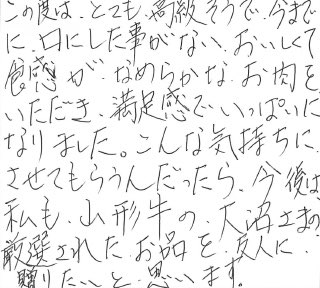 この度は、とても、高級そうで、今まで
に、口にした事がない、おいしくて
食感が、なめらかな、お肉を
いただき、満足感で、いっぱいに
なりました。こんな気持ちに
させてもらうんだったら、今後は
私も、山形牛の、大沼さまの
厳選された、お品を、友人に、
贈りたいと、思います。